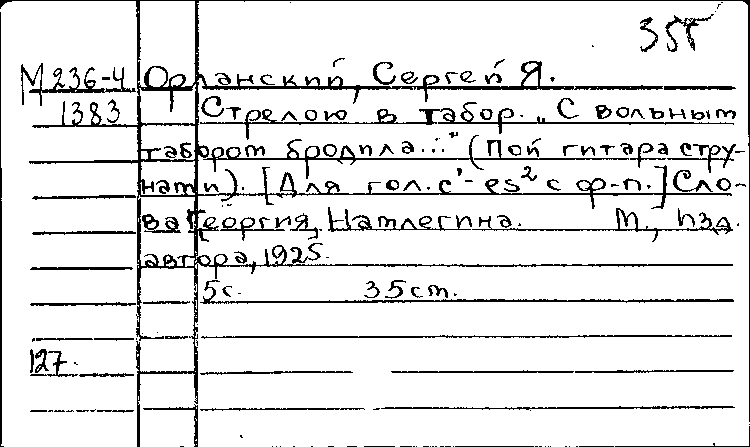 355
М 236-4 Орланский, Сергей Я.
1383 Стрелою в табор. „С вольным
табором бродила..." (Пой гитара стру-
нами). [Для гол. c¹-es² с ф-п.] Сло-
ва Георгия, Натлегина. М., изд.
автора, 1925.
5 с. 35 cm.
127.